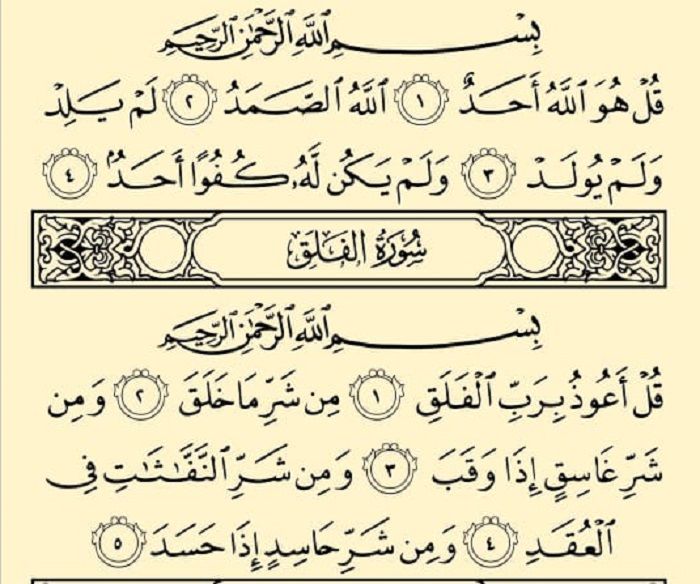 بِسْمِ ٱللَّهِ ٱلرَّحْمَٰنِ ٱلرَّحِيمِ
قُلْ هُوَ ٱللَّهُ أَحَدٌ ١ ٱللَّهُ ٱلصَّمَدُ ٢ لَمْ يَلِدْ
وَلَمْ يُولَدْ ٣ وَلَمْ يَكُن لَّهُۥ كُفُوًا أَحَدٌۢ ٤
سُورَةُ الفَلَقِ
بِسْمِ ٱللَّهِ ٱلرَّحْمَٰنِ ٱلرَّحِيمِ
قُلْ أَعُوذُ بِرَبِّ ٱلْفَلَقِ ١ مِن شَرِّ مَا خَلَقَ ٢ وَمِن
شَرِّ غَاسِقٍ إِذَا وَقَبَ ٣ وَمِن شَرِّ ٱلنَّفَّٰثَٰتِ فِى
ٱلْعُقَدِ ٤ وَمِن شَرِّ حَاسِدٍ إِذَا حَسَدَ ٥